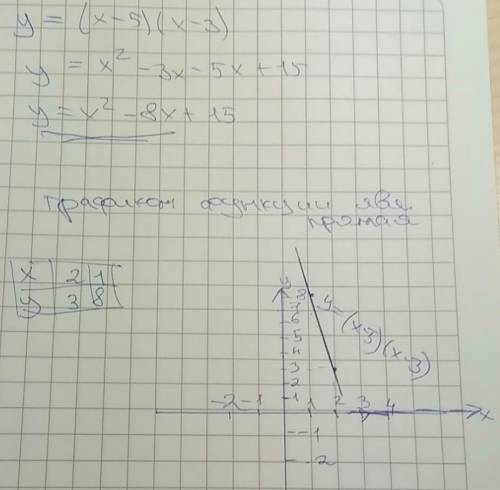 y = (x-5)(x-3)
y = x² - 3x - 5x + 15
y = x² - 8x + 15
график функции явл
прямая
x 2 1
y 3 8
y
8
7
6
5
4
3
2
1
y=(x-3)(x-3)
-2 -1 1 2 3 4 x
-1
-2